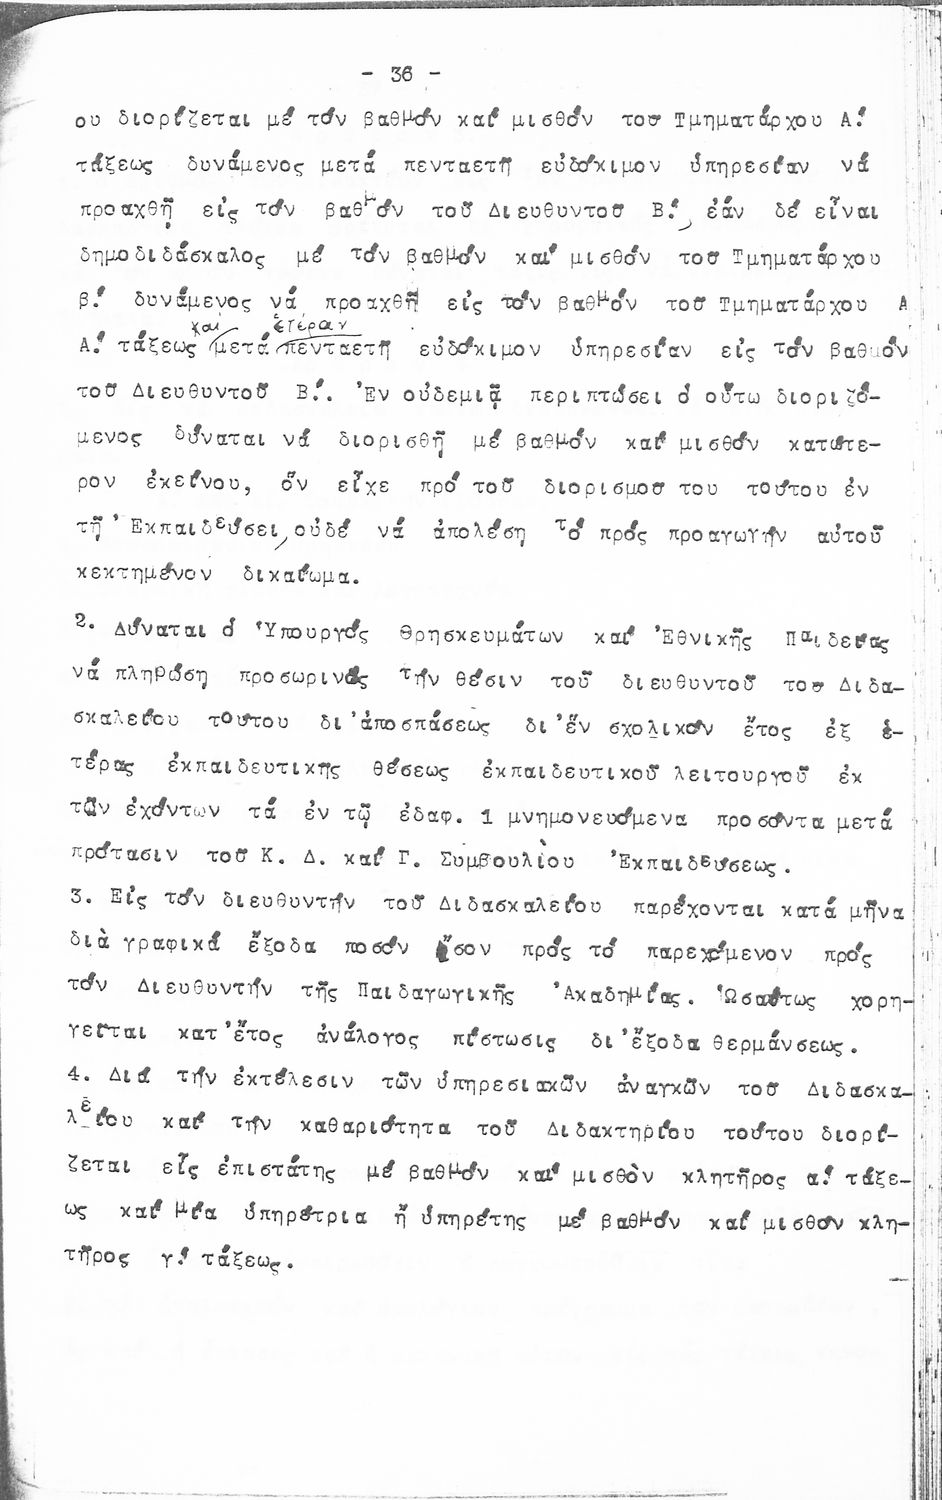 - 36 -
ου διορίζεται μέ τόν βαθμόν καί μισθόν του Τμηματάρχου Α!
τάξεως δυνάμενος μετά πενταετῆ εὐδόκιμον ὑπηρεσίαν νά
προαχθῇ εἰς τόν βαθμόν τοῦ Διευθυντοῦ Β!, ἐάν δέ εἶναι
δημοδιδάσκαλος μέ τόν βαθμόν καί μισθόν τοῦ Τμηματάρχου
β! δυνάμενος νά προαχθῇ εἰς τόν βαθμόν τοῦ Τμηματάρχου Α
και ἑτέραν
Α! τάξεως μετά πενταετῆ εὐδόκιμον ὑπηρεσίαν εἰς τόν βαθμόν
τοῦ Διευθυντοῦ Β!. Ἐν οὐδεμιᾷ περιπτώσει ὁ οὕτω διοριζό-
μενος δύναται νά διορισθῇ μέ βαθμόν καί μισθόν κατώτε-
ρον ἐκείνου, ὅν εἶχε πρό τοῦ διορισμοῦ του τούτου ἐν
τῇ Ἐκπαιδεύσει, οὐδέ νά ἀπολέση τό πρός προαγωγήν αὐτοῦ
κεκτημένον δικαίωμα.
2. Δύναται ὁ Ὑπουργός Θρησκευμάτων καί Ἐθνικῆς Παιδείας
νά πληρώση προσωρινῶς τήν θέσιν τοῦ διευθυντοῦ του Διδα-
σκαλείου τούτου δι'ἀποσπάσεως δι'ἕν σχολικόν ἔτος ἐξ ἑ-
τέρας ἐκπαιδευτικης θέσεως ἐκπαιδευτικοῦ λειτουργοῦ ἐκ
τῶν ἐχόντων τά ἐν τῷ ἐδαφ. 1 μνημονευόμενα προσόντα μετά
πρότασιν τοῦ Κ. Δ. καί Γ. Συμβουλίου Ἐκπαιδεύσεως.
3. Εἰς τόν διευθυντήν τοῦ Διδασκαλείου παρέχονται κατά μῆνα
διὰ γραφικά ἔξοδα ποσόν ἴσον πρός τό παρεχόμενον πρός
τόν Διευθυντήν τῆς Παιδαγωγικῆς Ἀκαδημίας. Ὡσαύτως χορη-
γεῖται κατ'ἔτος ἀνάλογος πίστωσις δι'ἔξοδα θερμάνσεως.
4. Διά τήν ἐκτέλεσιν τῶν ὑπηρεσιακῶν ἀναγκῶν τοῦ Διδασκα-
λείου καί τήν καθαριότητα τοῦ Διδακτηρίου τούτου διορί-
ζεται εἷς ἐπιστάτης μέ βαθμόν καί μισθὸν κλητῆρος α! τάξε-
ως καί μία ὑπηρέτρια ἤ ὑπηρέτης μέ βαθμόν καί μισθον κλη-
τῆρος γ! τάξεως.